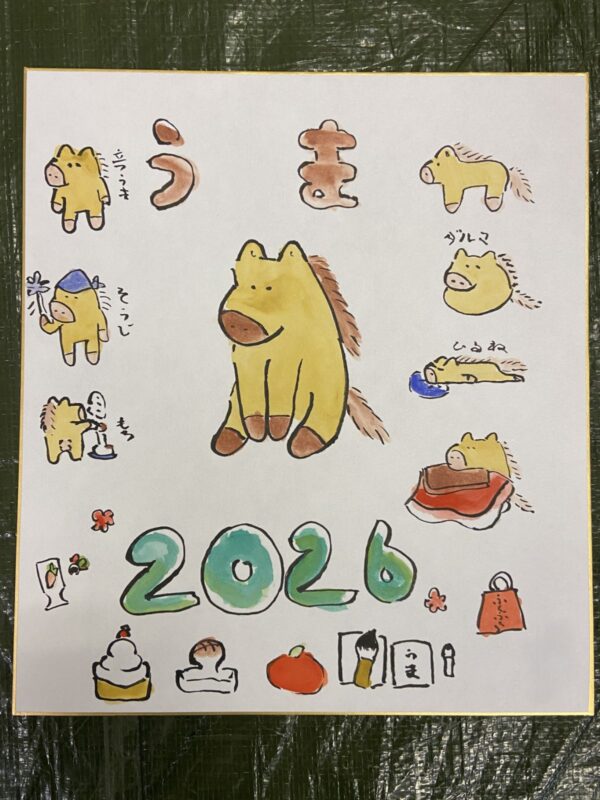 うま
立つうま
ダルマ
そうじ
ひるね
もち
2026
うま